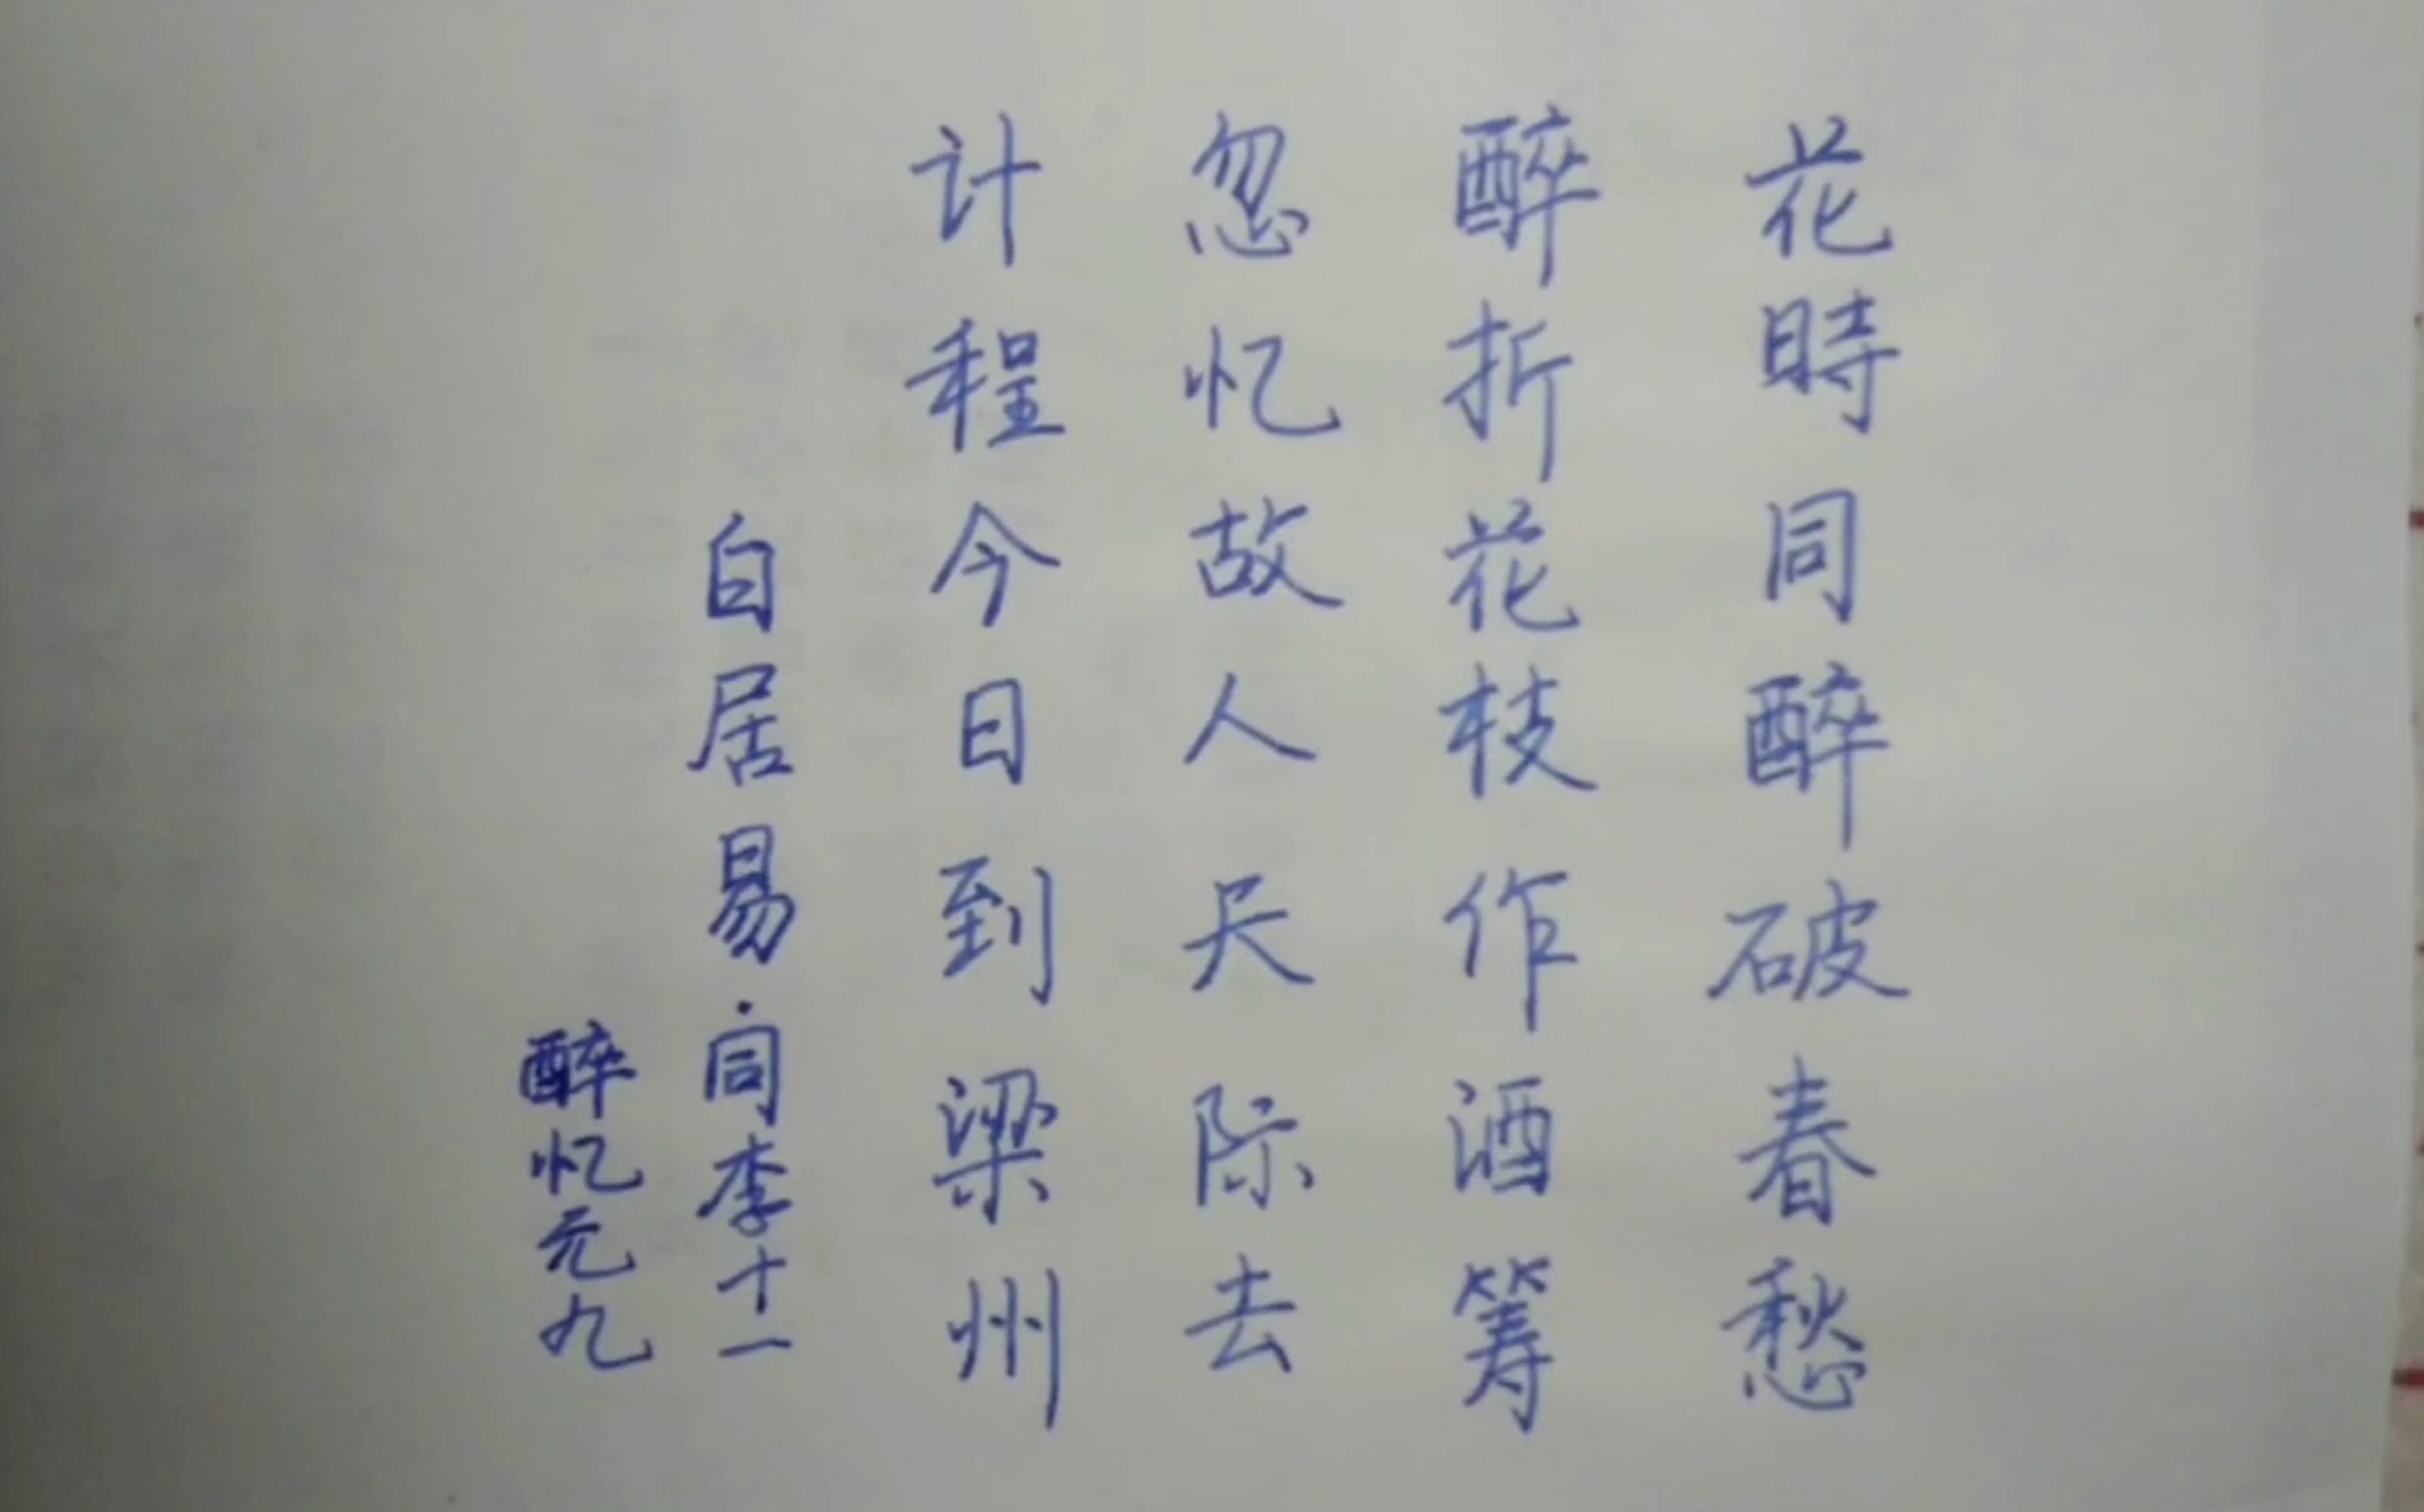 花時同醉破春愁
醉折花枝作酒筹
忽忆故人天际去
计程今日到梁州
白居易·同李十一
醉忆元九